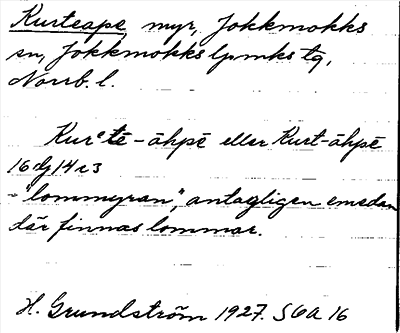 Kurteape, myr, Jokkmokks
sn, Jokkmokks lpmks tg,
Norrb. l.
Kurᵉtē-āhpē eller Kurt-āhpē
16 14 3
- "lommyran", antagligen emedan
där finnas lommar.
H. Grundström 1927. SOA 16